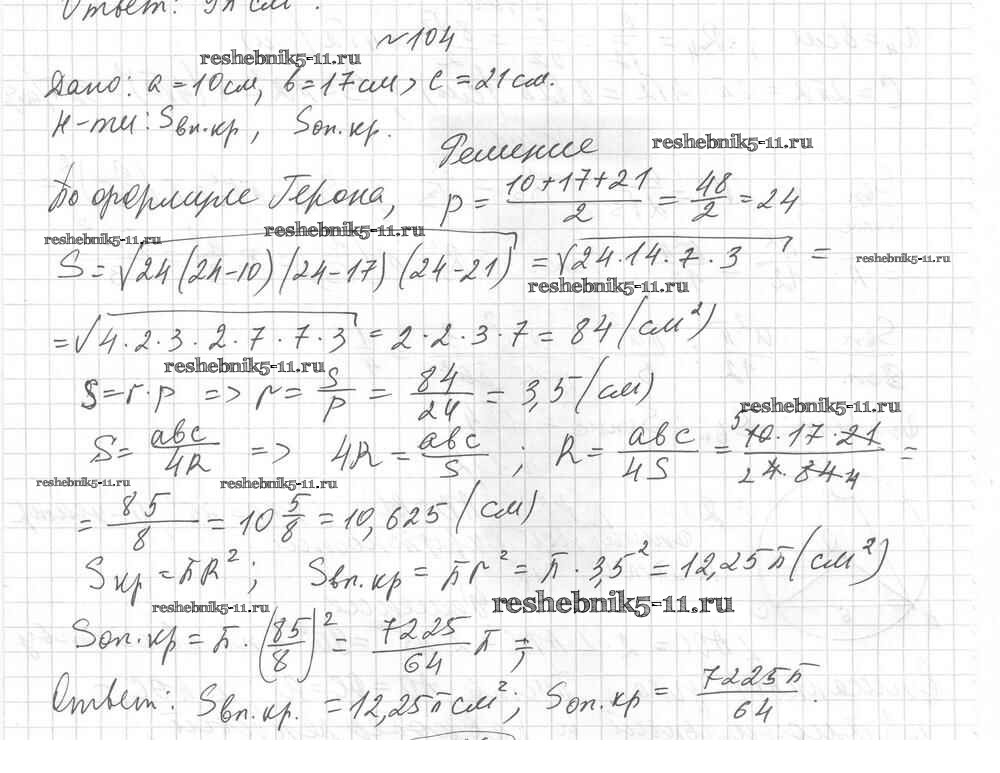 Ответ: 9π см².
№104
reshebnik5-11.ru
Дано: a = 10 см, b = 17 см, c = 21 см.
Н-ти: Sвп.кр, Sоп.кр.
reshebnik5-11.ru
Решение
По формуле Герона, p = (10+17+21)/2 = 48/2 = 24
reshebnik5-11.ru reshebnik5-11.ru
S = √24(24-10)(24-17)(24-21) = √24·14·7·3 =
reshebnik5-11.ru reshebnik5-11.ru
= √4·2·3·2·7·7·3 = 2·2·3·7 = 84 (см²)
reshebnik5-11.ru
S = r·p => r = S/p = 84/24 = 3,5 (см)
reshebnik5-11.ru
S = abc/4R => 4R = abc/S ; R = abc/4S = 5 10·17·21/2 4·84 4 =
reshebnik5-11.ru reshebnik5-11.ru
= 85/8 = 10 5/8 = 10,625 (см)
Sкр = πR²; Sвп.кр = πr² = π·3,5² = 12,25π (см²)
reshebnik5-11.ru reshebnik5-11.ru
Sоп.кр = π·(85/8)² = 7225/64 π;
Ответ: Sвп.кр. = 12,25π см²; Sоп.кр = 7225π/64.